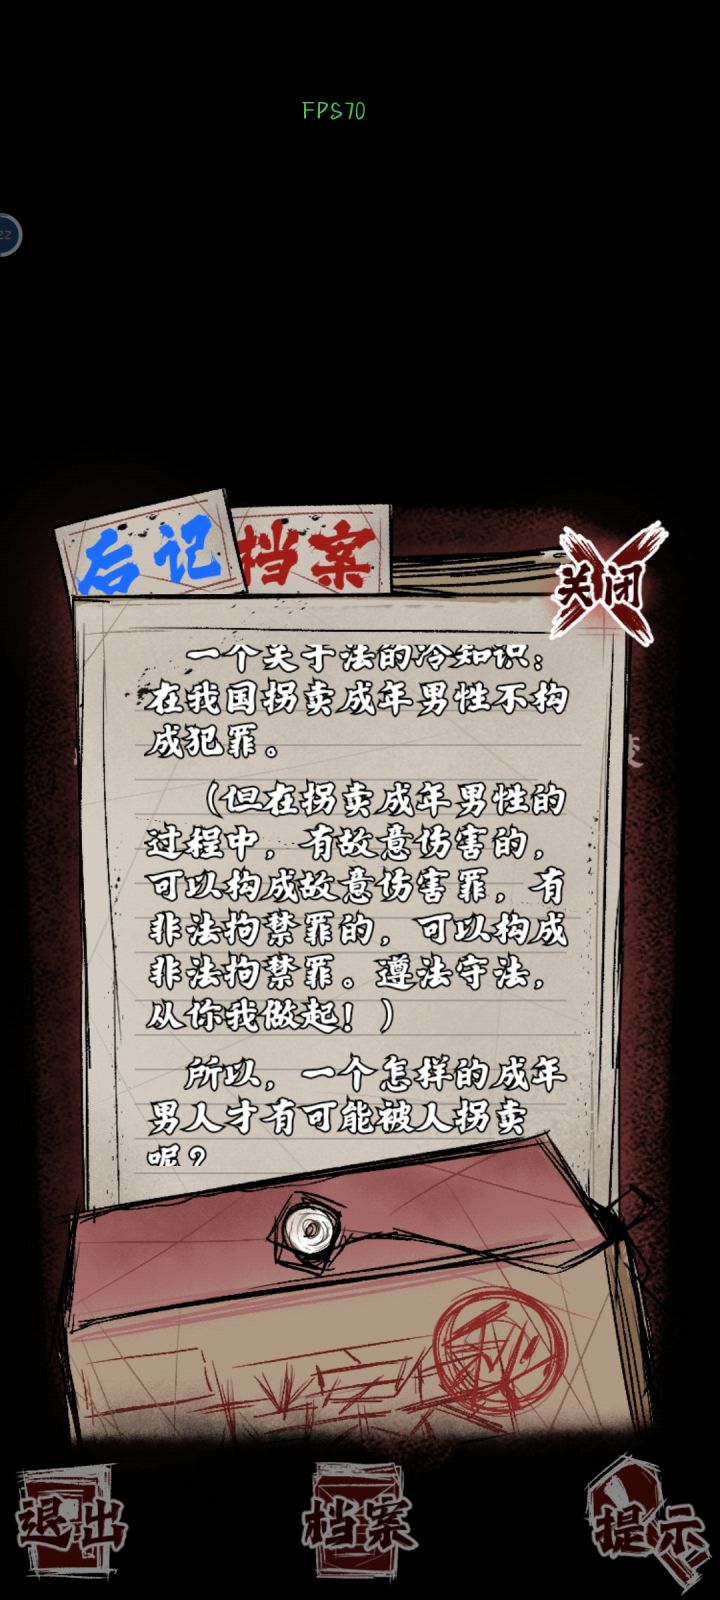 FPS70
后记
档案
关闭
一个关于法的冷知识：
在我国拐卖成年男性不构
成犯罪。
（但在拐卖成年男性的
过程中，有故意伤害的，
可以构成故意伤害罪，有
非法拘禁罪的，可以构成
非法拘禁罪。遵法守法，
从你我做起！）
所以，一个怎样的成年
男人才有可能被人拐卖
呢？
退出
档案
提示